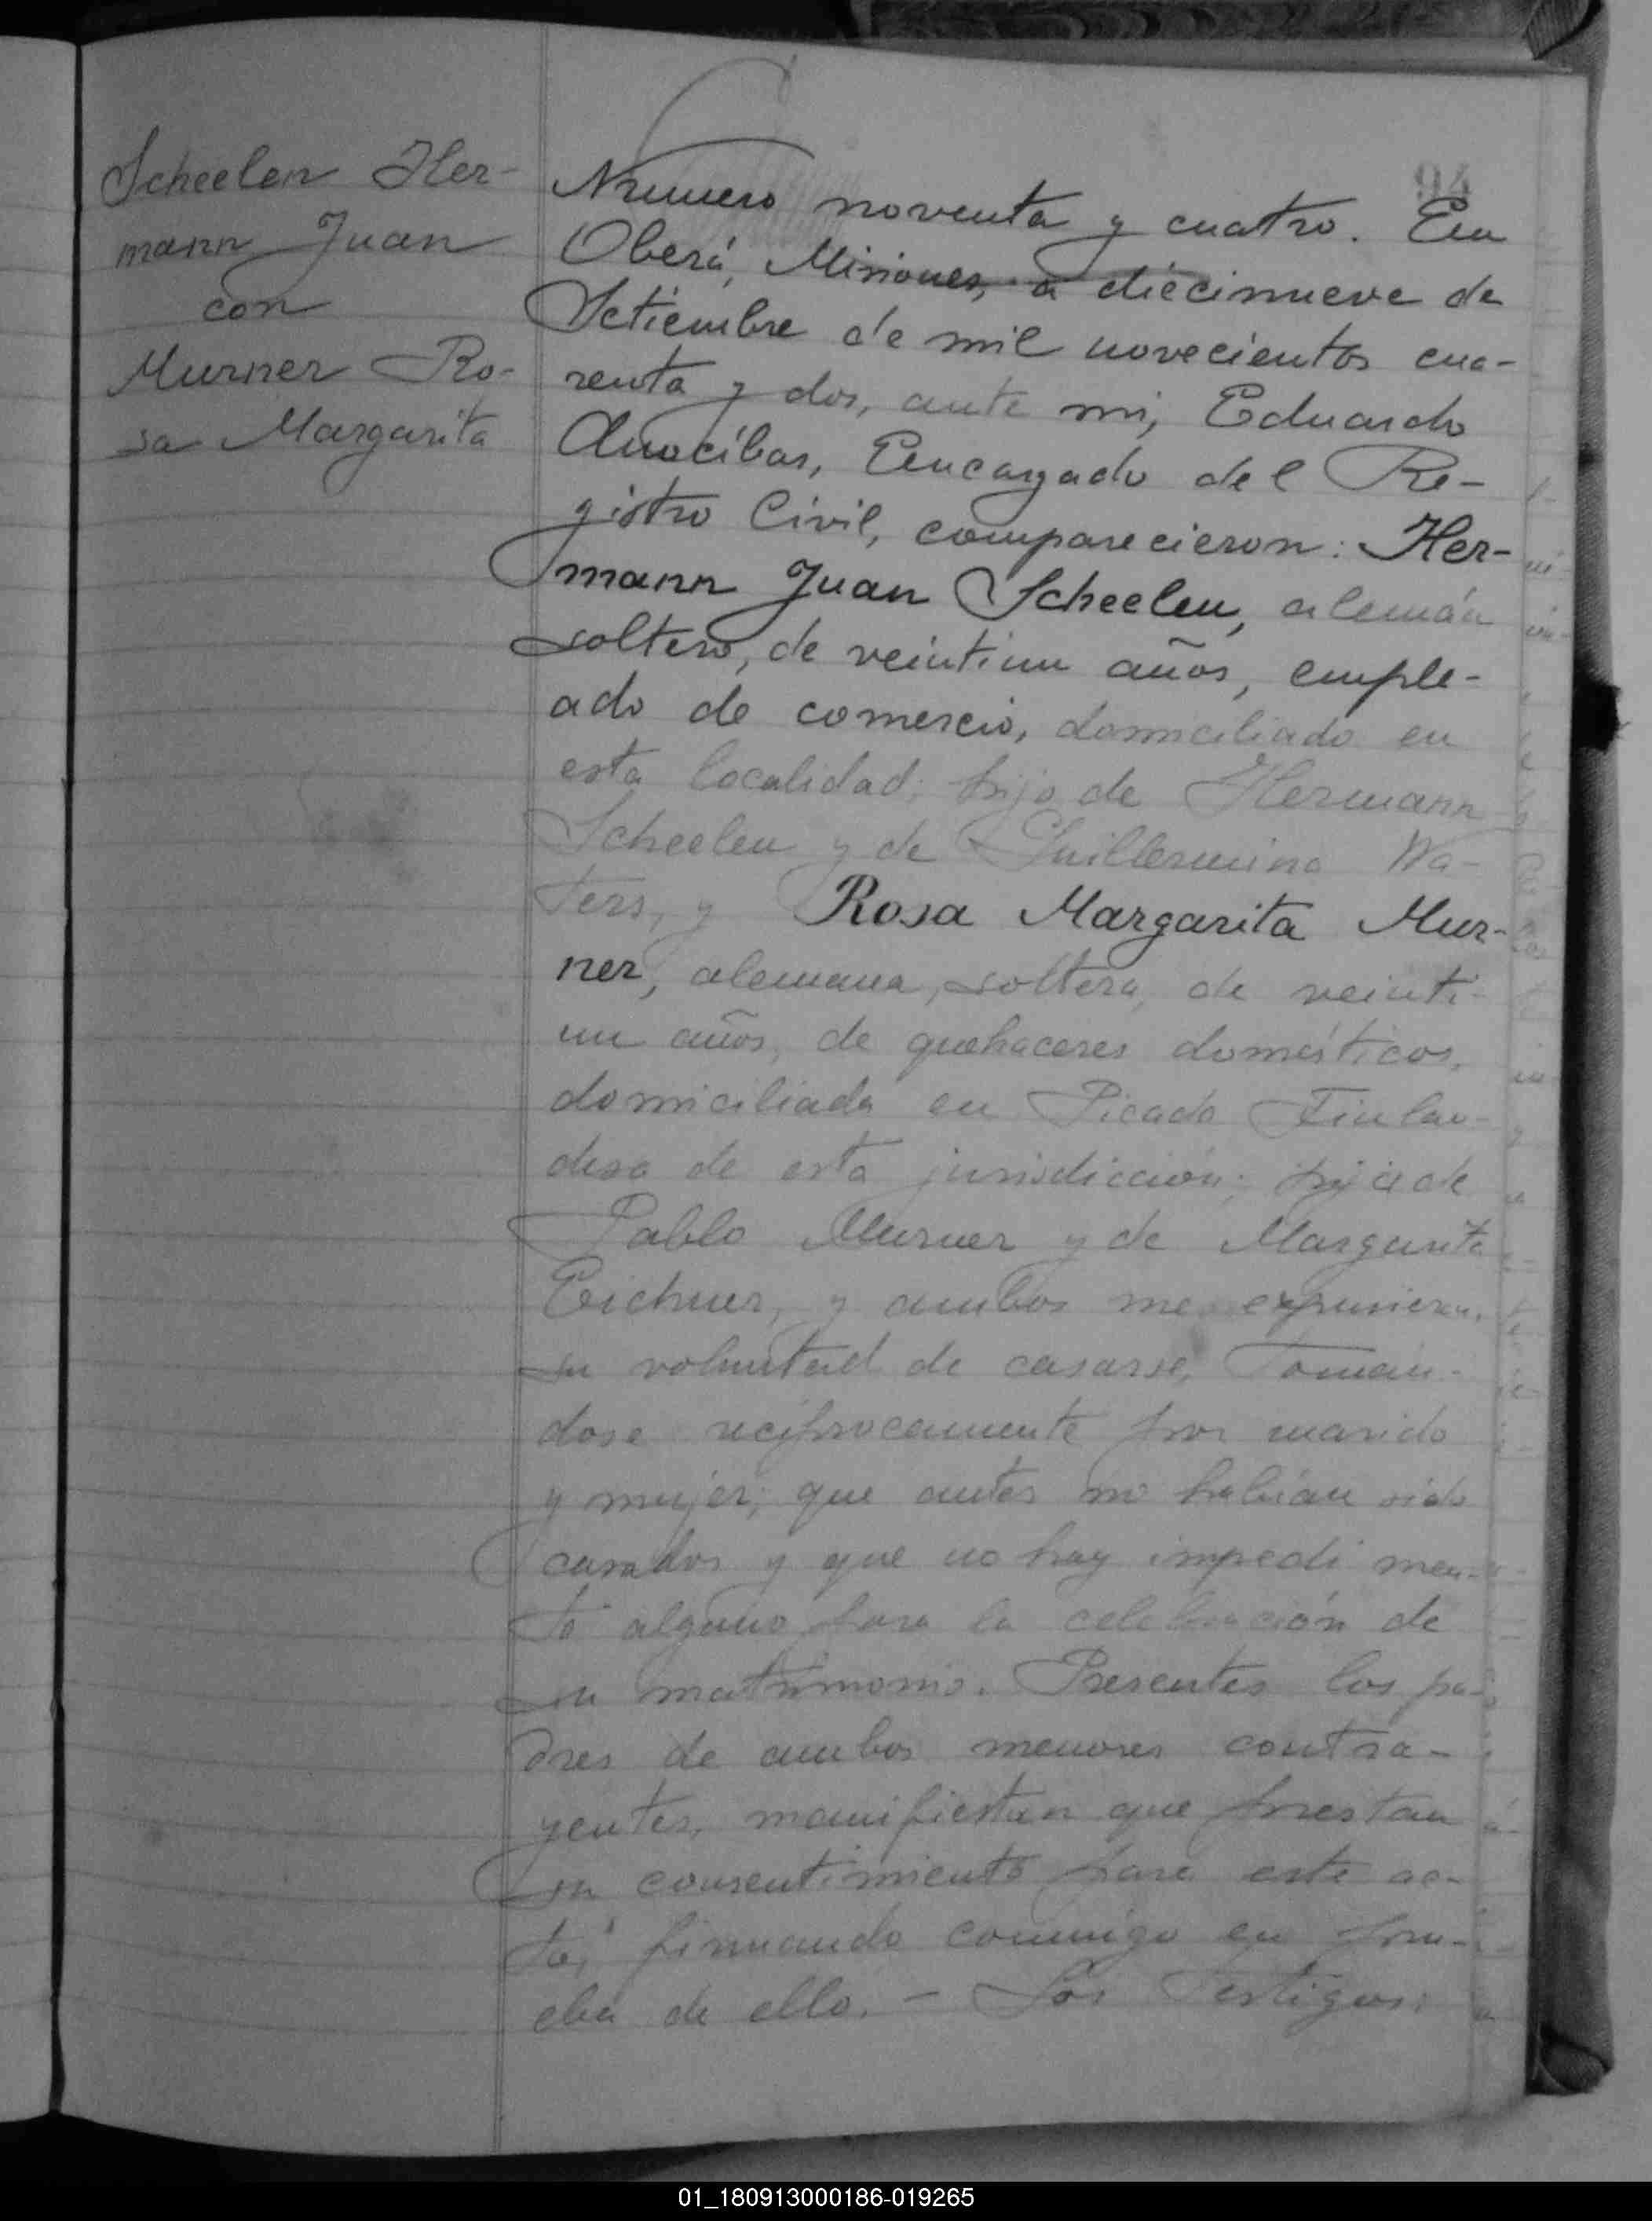 94
Scheelen Her-
mann Juan
con
Murner Ro-
sa Margarita
Numero noventa y cuatro. En
Oberá, Misiones, a diecinueve de
Setiembre de mil novecientos cua-
renta y dos, ante mi, Eduardo
Anocíbar, Encargado del Re-
gistro Civil, comparecieron: Her-
mann Juan Scheelen, alemán
soltero, de veintiun años, emple-
ado de comercio, domiciliado en
esta localidad; hijo de Hermann
Scheelen y de Guillermina Wa-
ters, y Rosa Margarita Mur-
ner, alemana, soltera, de veinti-
un años, de quehaceres domésticos,
domiciliada en Picada Finlan-
desa de esta jurisdicción; hija de
Pablo Murner y de Margarita
Eichner, y ambos me expusieron
su voluntad de casarse, toman-
dose reciprocamente por marido
y mujer; que antes no habian sido
casados y que no hay impedi men-
to alguno para la celebración de
su matrimonio. Presentes los pa-
dres de ambos menores contra-
yentes, manifiestan que prestan
su consentimiento para este ac-
to, firmando conmigo en prue-
eba de ello. - Los Testigos:
01_180913000186-019265